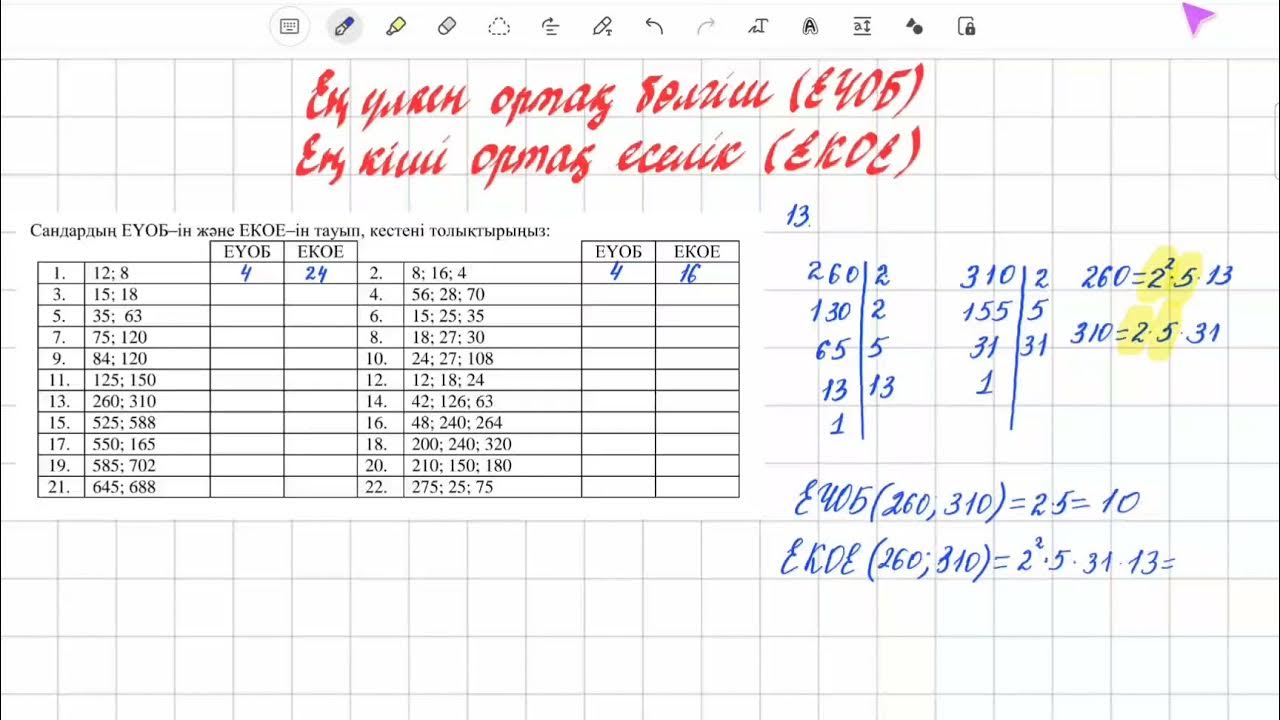 Ең үлкен ортақ бөлгіш (ЕҮОБ)
Ең кіші ортақ еселік (ЕКОЕ)
Сандардың ЕҮОБ–ін және ЕКОЕ–ін тауып, кестені толықтырыңыз:
ЕҮОБ ЕКОЕ ЕҮОБ ЕКОЕ
1. 12; 8 4 24 2. 8; 16; 4 4 16
3. 15; 18 4. 56; 28; 70
5. 35; 63 6. 15; 25; 35
7. 75; 120 8. 18; 27; 30
9. 84; 120 10. 24; 27; 108
11. 125; 150 12. 12; 18; 24
13. 260; 310 14. 42; 126; 63
15. 525; 588 16. 48; 240; 264
17. 550; 165 18. 200; 240; 320
19. 585; 702 20. 210; 150; 180
21. 645; 688 22. 275; 25; 75
13.
260 2 310 2 260=2²·5·13
130 2 155 5 310=2·5·31
65 5 31 31
13 13 1
1
ЕҮОБ(260; 310)=2·5=10
ЕКОЕ(260; 310)=2²·5·31·13=